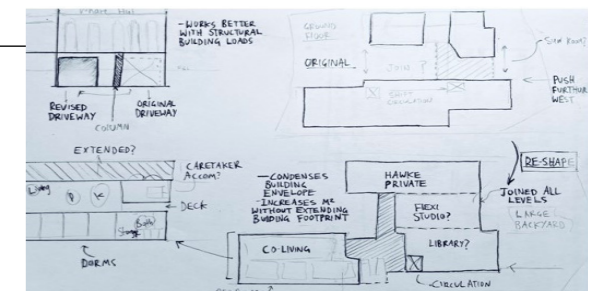 - WORKS BETTER
WITH STRUCTURAL
BUILDING LOADS
REVISED
DRIVEWAY
COLUMN
ORIGINAL
DRIVEWAY
GROUND
FLOOR
ORIGINAL
JOIN ?
CIRCULATION
PUSH
FURTHUR
WEST
EXTENDED?
CARETAKER
ACCOM?
Living
DECK
DORMS
- CONDENSES
BUILDING
ENVELOPE
- INCREASES M²
WITHOUT EXTENDING
BUILDING FOOTPRINT
CO-LIVING
HAWKE
PRIVATE
FLEXI
STUDIO?
LIBRARY?
CIRCULATION
RE-SHAPE
JOINED ALL
LEVELS
LARGE
BACKYARD